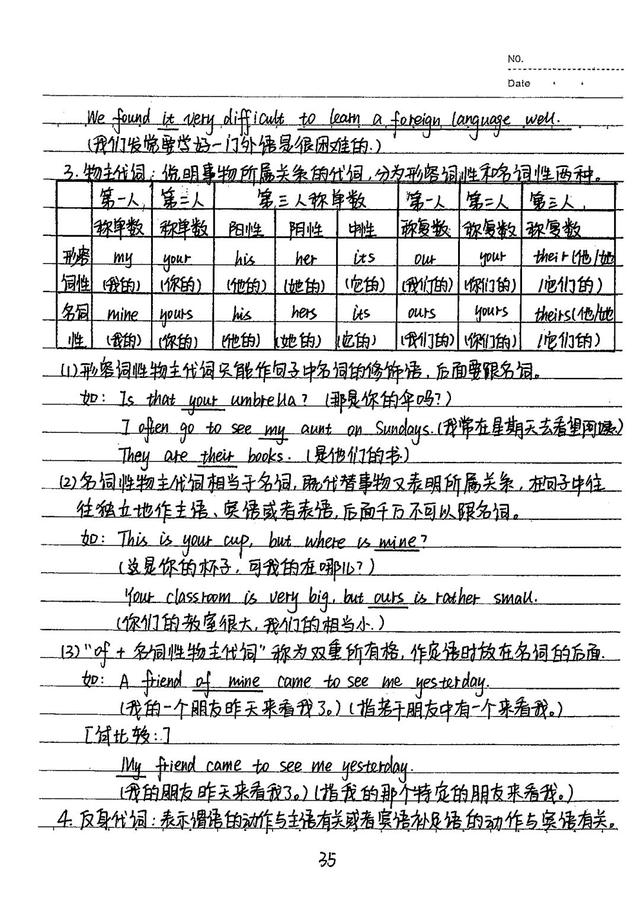 NO.
Date
We found it very difficult to learn a foreign language well.
(我们发觉要学好一门外语是很困难的.)
3.物主代词:说明事物所属关系的代词,分为形容词性和名词性两种。
第一人 第二人 第三人称单数 第一人 第二人 第三人
称单数 称单数 阳性 阳性 中性 称复数 称复数 称复数
形容 my your his her its our your their(他/她
词性 (我的) (你的) (他的) (她的) (它的) (我们的) (你们的) /它们的)
名词 mine yours his hers its ours yours theirs(他/她
性 (我的) (你的) (他的) (她的) (它的) (我们的) (你们的) /它们的)
(1)形容词性物主代词只能作句子中名词的修饰语,后面要跟名词。
如: Is that your umbrella? (那是你的伞吗?)
I often go to see my aunt on Sundays.(我常在星期天去看望阿姨)
They are their books. (是他们的书)
(2)名词性物主代词相当于名词,既代替事物又表明所属关系,在句子中往
往独立地作主语、宾语或者表语,后面千万不可以跟名词。
如: This is your cup, but where is mine?
(这是你的杯子,可我的在哪儿?)
Your classroom is very big, but ours is rather small.
(你们的教室很大,我们的相当小.)
(3)"of + 名词性物主代词"称为双重所有格,作定语时放在名词的后面.
如: A friend of mine came to see me yesterday.
(我的一个朋友昨天来看我了。)(指若干朋友中有一个来看我。)
[试比较:]
My friend came to see me yesterday.
(我的朋友昨天来看我了。)(指我的那个特定的朋友来看我。)
4.反身代词:表示谓语的动作与主语有关或者宾语补足语的动作与宾语有关。
35